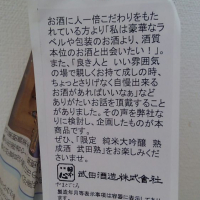 お酒に人一倍こだわりをもた
れている方より「私は豪華なラ
ベルや包装のお酒より、酒質
本位のお酒と出会いたい!」。
また、「良き人と いい雰囲気
の場で親しくお持て成しの時、
ちょっとさりげなく自慢出来る
お酒があればいいなあ」など
ありがたいお話を頂戴すること
がありました。その声を弊社な
りに検討し、企画したものが本
商品です。
ぜひ、「限定 純米大吟醸 熟
成酒 武田熟」をお楽しみくだ
さいませ。
武田酒造株式会社
製造年月等表示事項は容器に表示しており